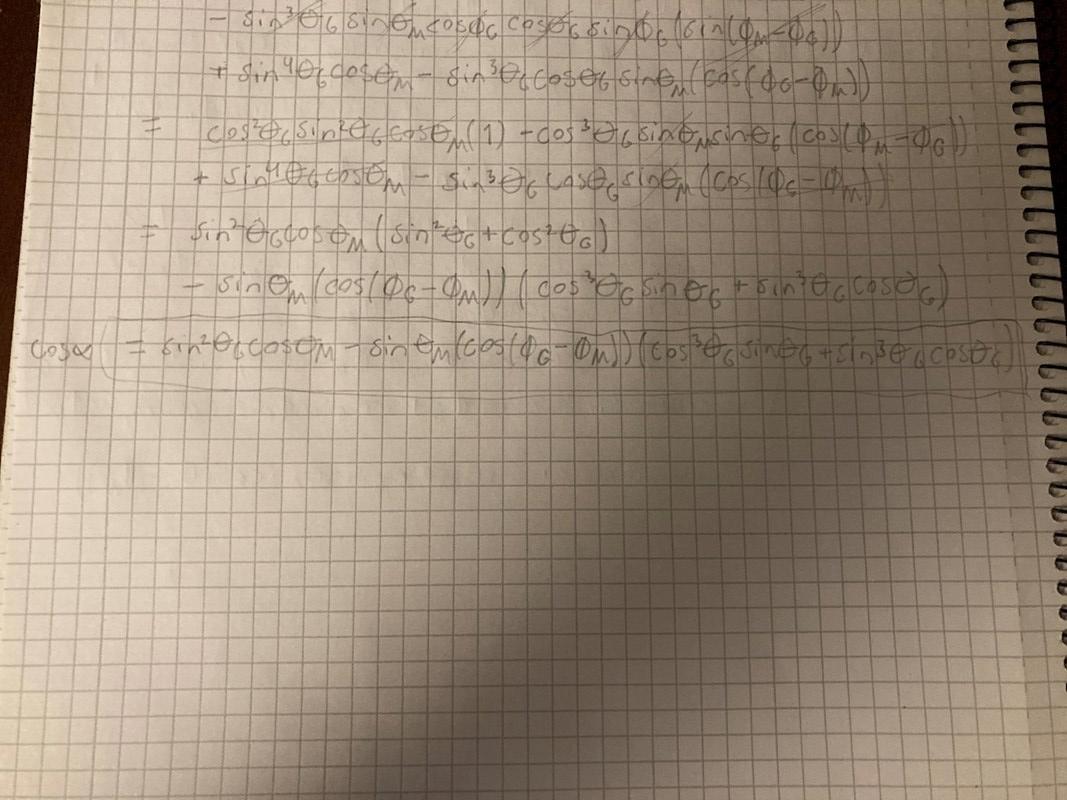 - sin³θ_G sinθ_M cosϕ_G cosθ_G sinϕ_G (sin(ϕ_M-ϕ_G))
+ sin⁴θ_G cosθ_M - sin³θ_G cosθ_G sinθ_M (cos(ϕ_G-ϕ_M))
= cos²θ_G sin²θ_G cosθ_M (1) - cos³θ_G sinθ_M sinθ_G (cos(ϕ_M-ϕ_G))
+ sin⁴θ_G cosθ_M - sin³θ_G cosθ_G sinθ_M (cos(ϕ_G-ϕ_M))
= sin²θ_G cosθ_M (sin²θ_G + cos²θ_G)
- sinθ_M (cos(ϕ_G-ϕ_M)) (cos³θ_G sinθ_G + sin³θ_G cosθ_G)
cosα (= sin²θ_G cosθ_M - sinθ_M (cos(ϕ_G-ϕ_M)) (cos³θ_G sinθ_G + sin³θ_G cosθ_G)